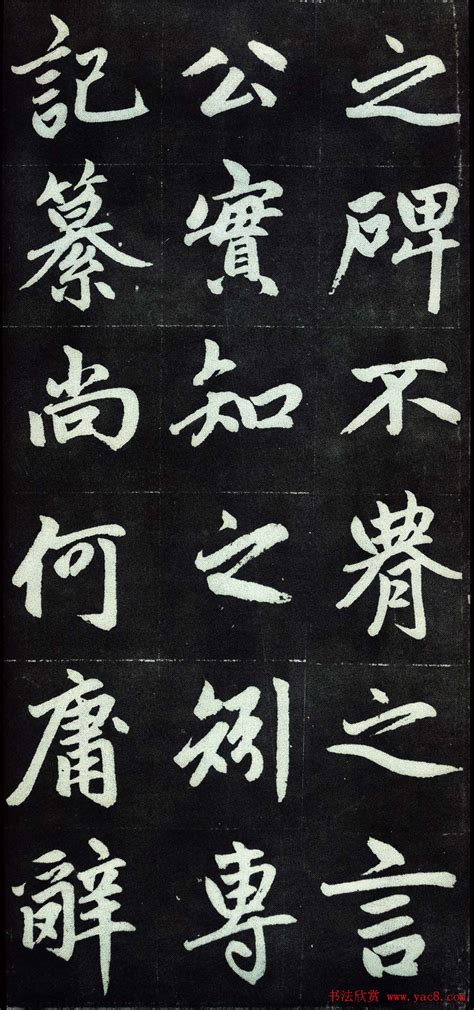 之碑不腆之言
公實知之矧專
記纂尚何庸辭
书法欣赏 www.yac8.com